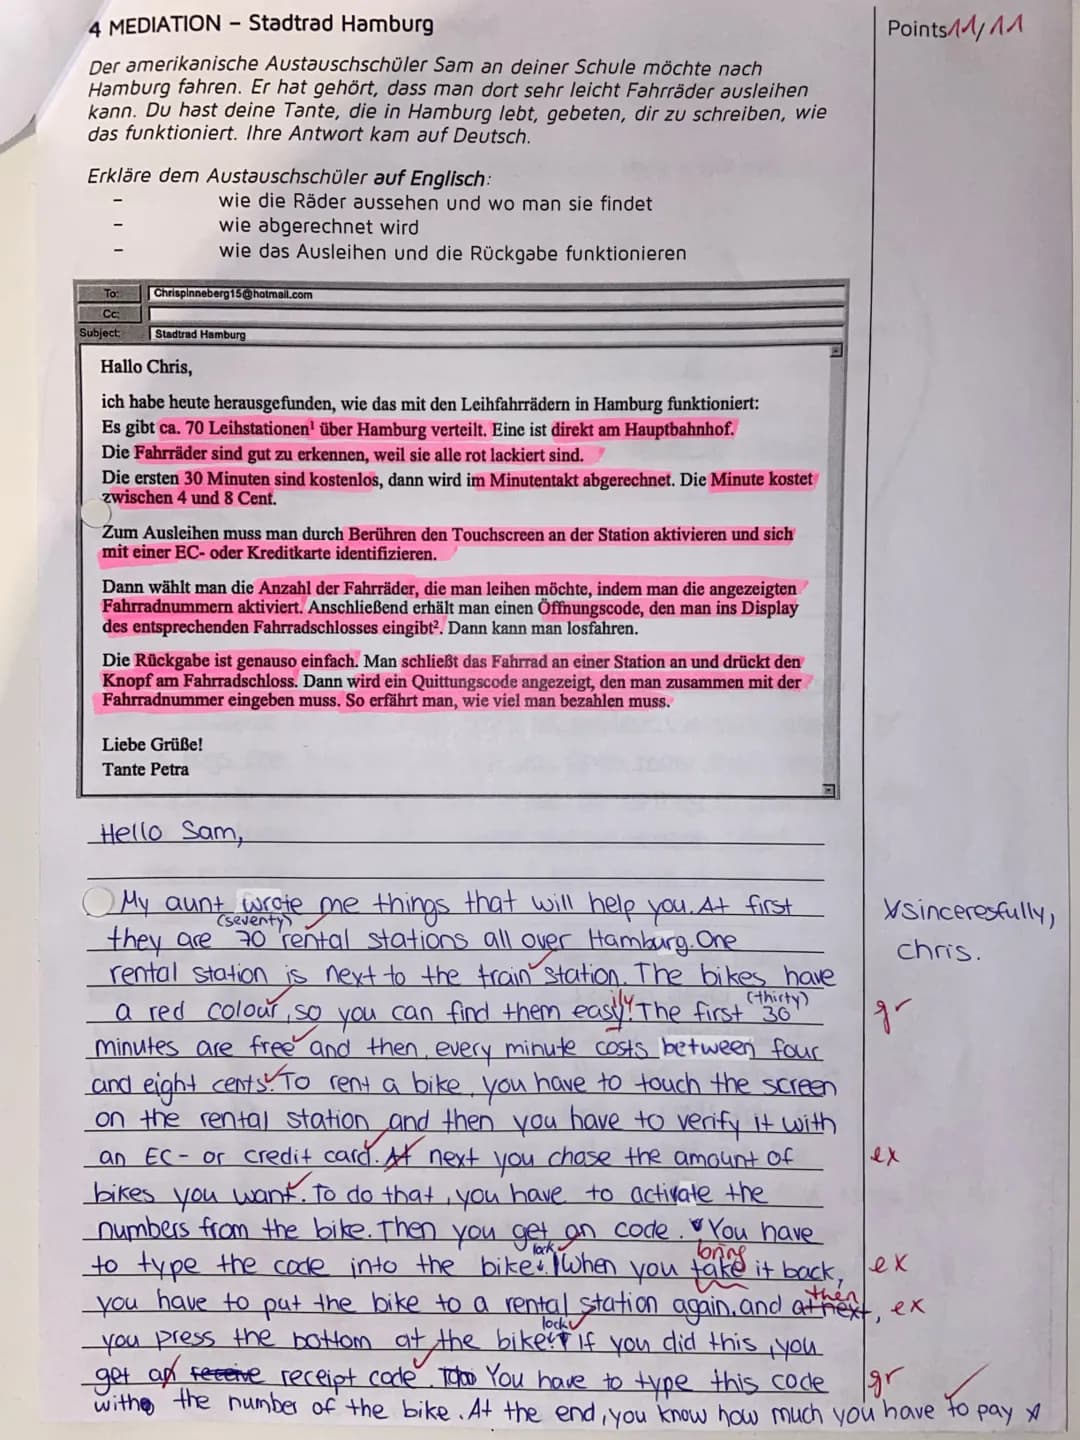 4 MEDIATION – Stadtrad Hamburg
Points 11/11
Der amerikanische Austauschschüler Sam an deiner Schule möchte nach
Hamburg fahren. Er hat gehört, dass man dort sehr leicht Fahrräder ausleihen
kann. Du hast deine Tante, die in Hamburg lebt, gebeten, dir zu schreiben, wie
das funktioniert. Ihre Antwort kam auf Deutsch.
Erkläre dem Austauschschüler auf Englisch:
- wie die Räder aussehen und wo man sie findet
- wie abgerechnet wird
- wie das Ausleihen und die Rückgabe funktionieren
To: Chrispinneberg15@hotmail.com
Cc:
Subject: Stadtrad Hamburg
Hallo Chris,
ich habe heute herausgefunden, wie das mit den Leihfahrrädern in Hamburg funktioniert:
Es gibt ca. 70 Leihstationen¹ über Hamburg verteilt. Eine ist direkt am Hauptbahnhof.
Die Fahrräder sind gut zu erkennen, weil sie alle rot lackiert sind.
Die ersten 30 Minuten sind kostenlos, dann wird im Minutentakt abgerechnet. Die Minute kostet
zwischen 4 und 8 Cent.
Zum Ausleihen muss man durch Berühren den Touchscreen an der Station aktivieren und sich
mit einer EC- oder Kreditkarte identifizieren.
Dann wählt man die Anzahl der Fahrräder, die man leihen möchte, indem man die angezeigten
Fahrradnummern aktiviert. Anschließend erhält man einen Öffnungscode, den man ins Display
des entsprechenden Fahrradschlosses eingibt². Dann kann man losfahren.
Die Rückgabe ist genauso einfach. Man schließt das Fahrrad an einer Station an und drückt den
Knopf am Fahrradschloss. Dann wird ein Quittungscode angezeigt, den man zusammen mit der
Fahrradnummer eingeben muss. So erfährt man, wie viel man bezahlen muss.
Liebe Grüße!
Tante Petra
Hello Sam,
My aunt wrote me things that will help you. At first
(seventy)
they are 70 rental stations all over Hamburg. One
rental station is next to the train station. The bikes have
a red colour, so you can find them easily! The first 30
(thirty)
gr
minutes are free and then, every minute costs between four
and eight cents. To rent a bike, you have to touch the screen
on the rental station and then you have to verify it with
an EC- or credit card. At next you chose the amount of
ex
bikes you want. To do that, you have to activate the
numbers from the bike. Then you get an code. You have
lock
bring
to type the code into the bike. When you take it back,
ex
then
you have to put the bike to a rental station again, and at next,
ex
lock
you press the bottom at the bike. If you did this, you
get an receive receipt code. You have to type this code
gr
with the number of the bike. At the end, you know how much you have to pay x
sinceresfully,
chris.